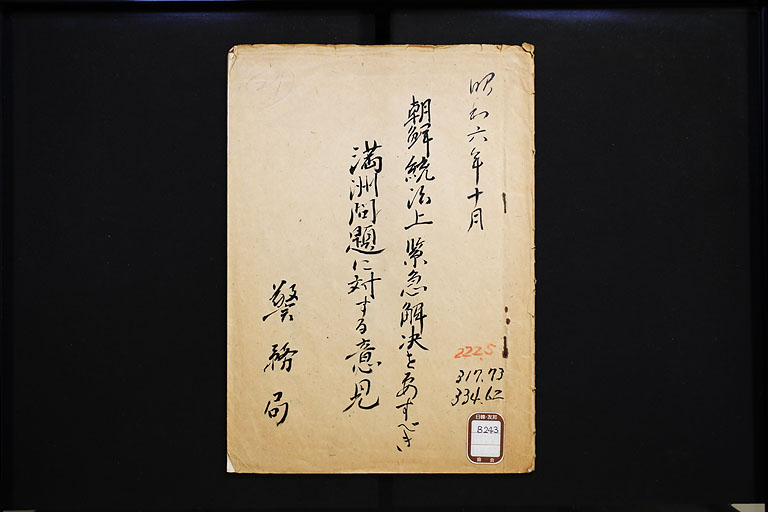 昭和六年十月
朝鮮統治上緊急解決を要すべき
満洲問題に対する意見
警務局
222.5
317.73
334.62
日韓・友邦
B243